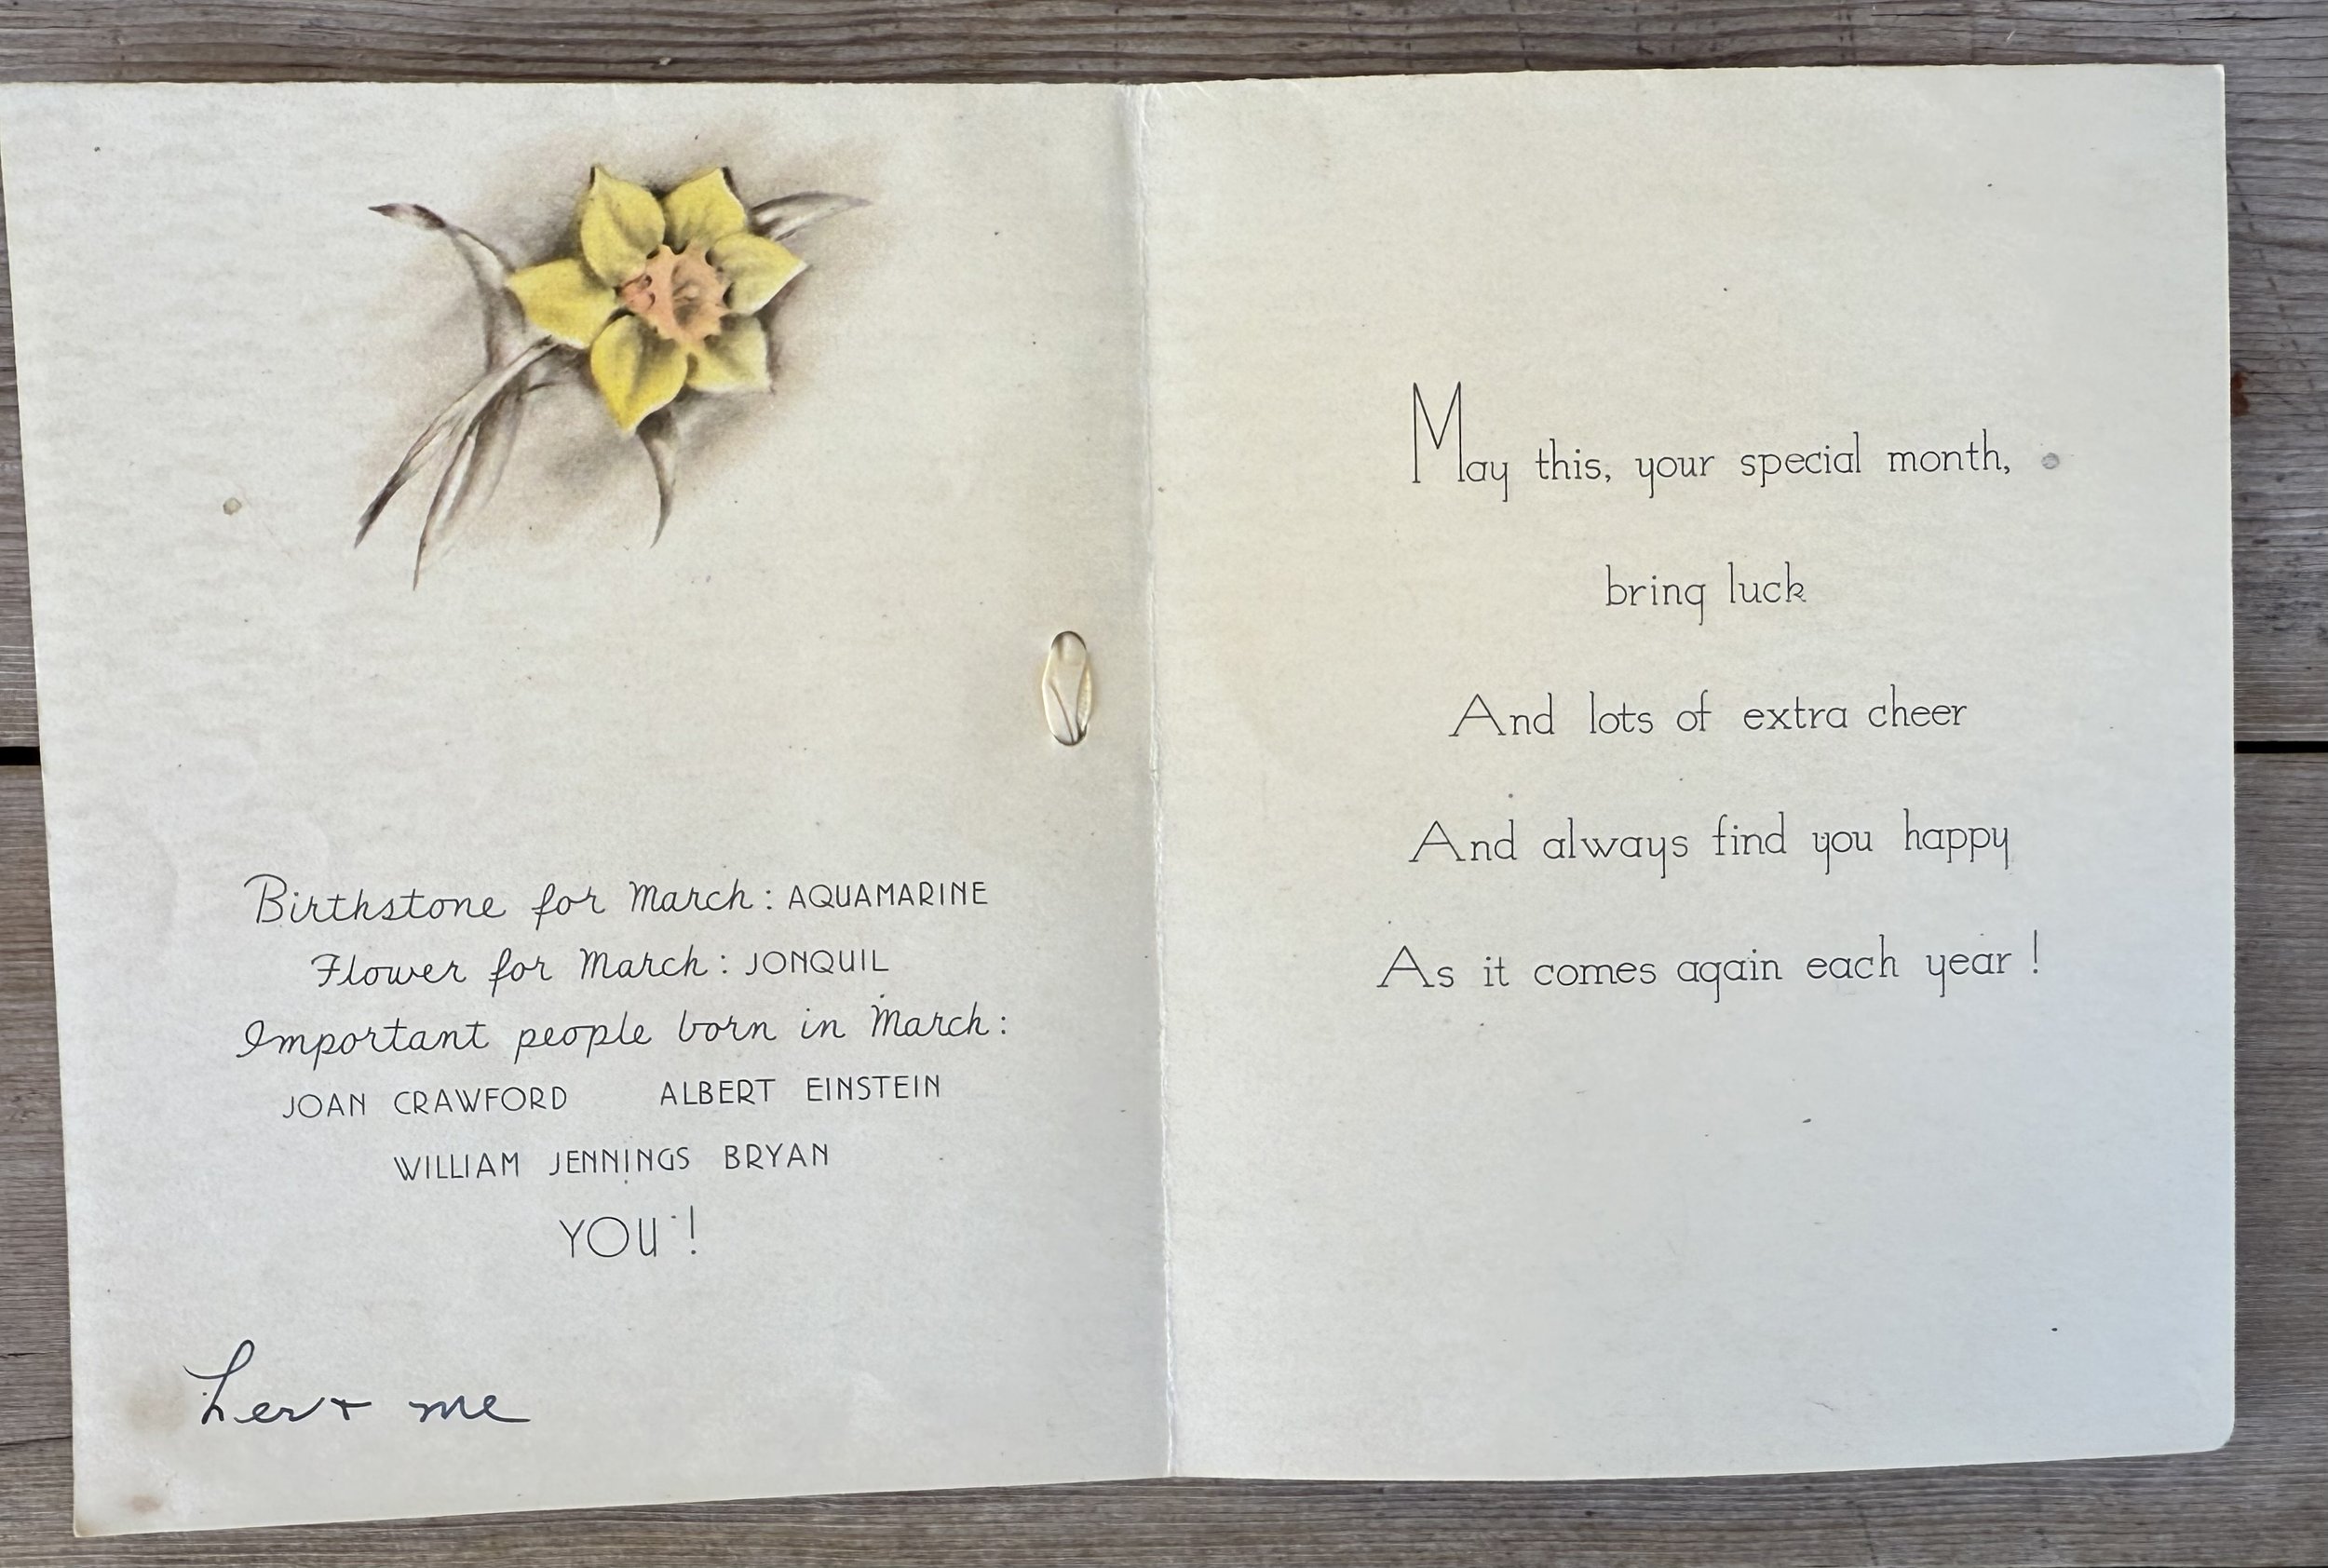 Birthstone for March: AQUAMARINE
Flower for March: JONQUIL
Important people born in March:
JOAN CRAWFORD ALBERT EINSTEIN
WILLIAM JENNINGS BRYAN
YOU!
+ me
May this, your special month,
bring luck
And lots of extra cheer
And always find you happy
As it comes again each year!